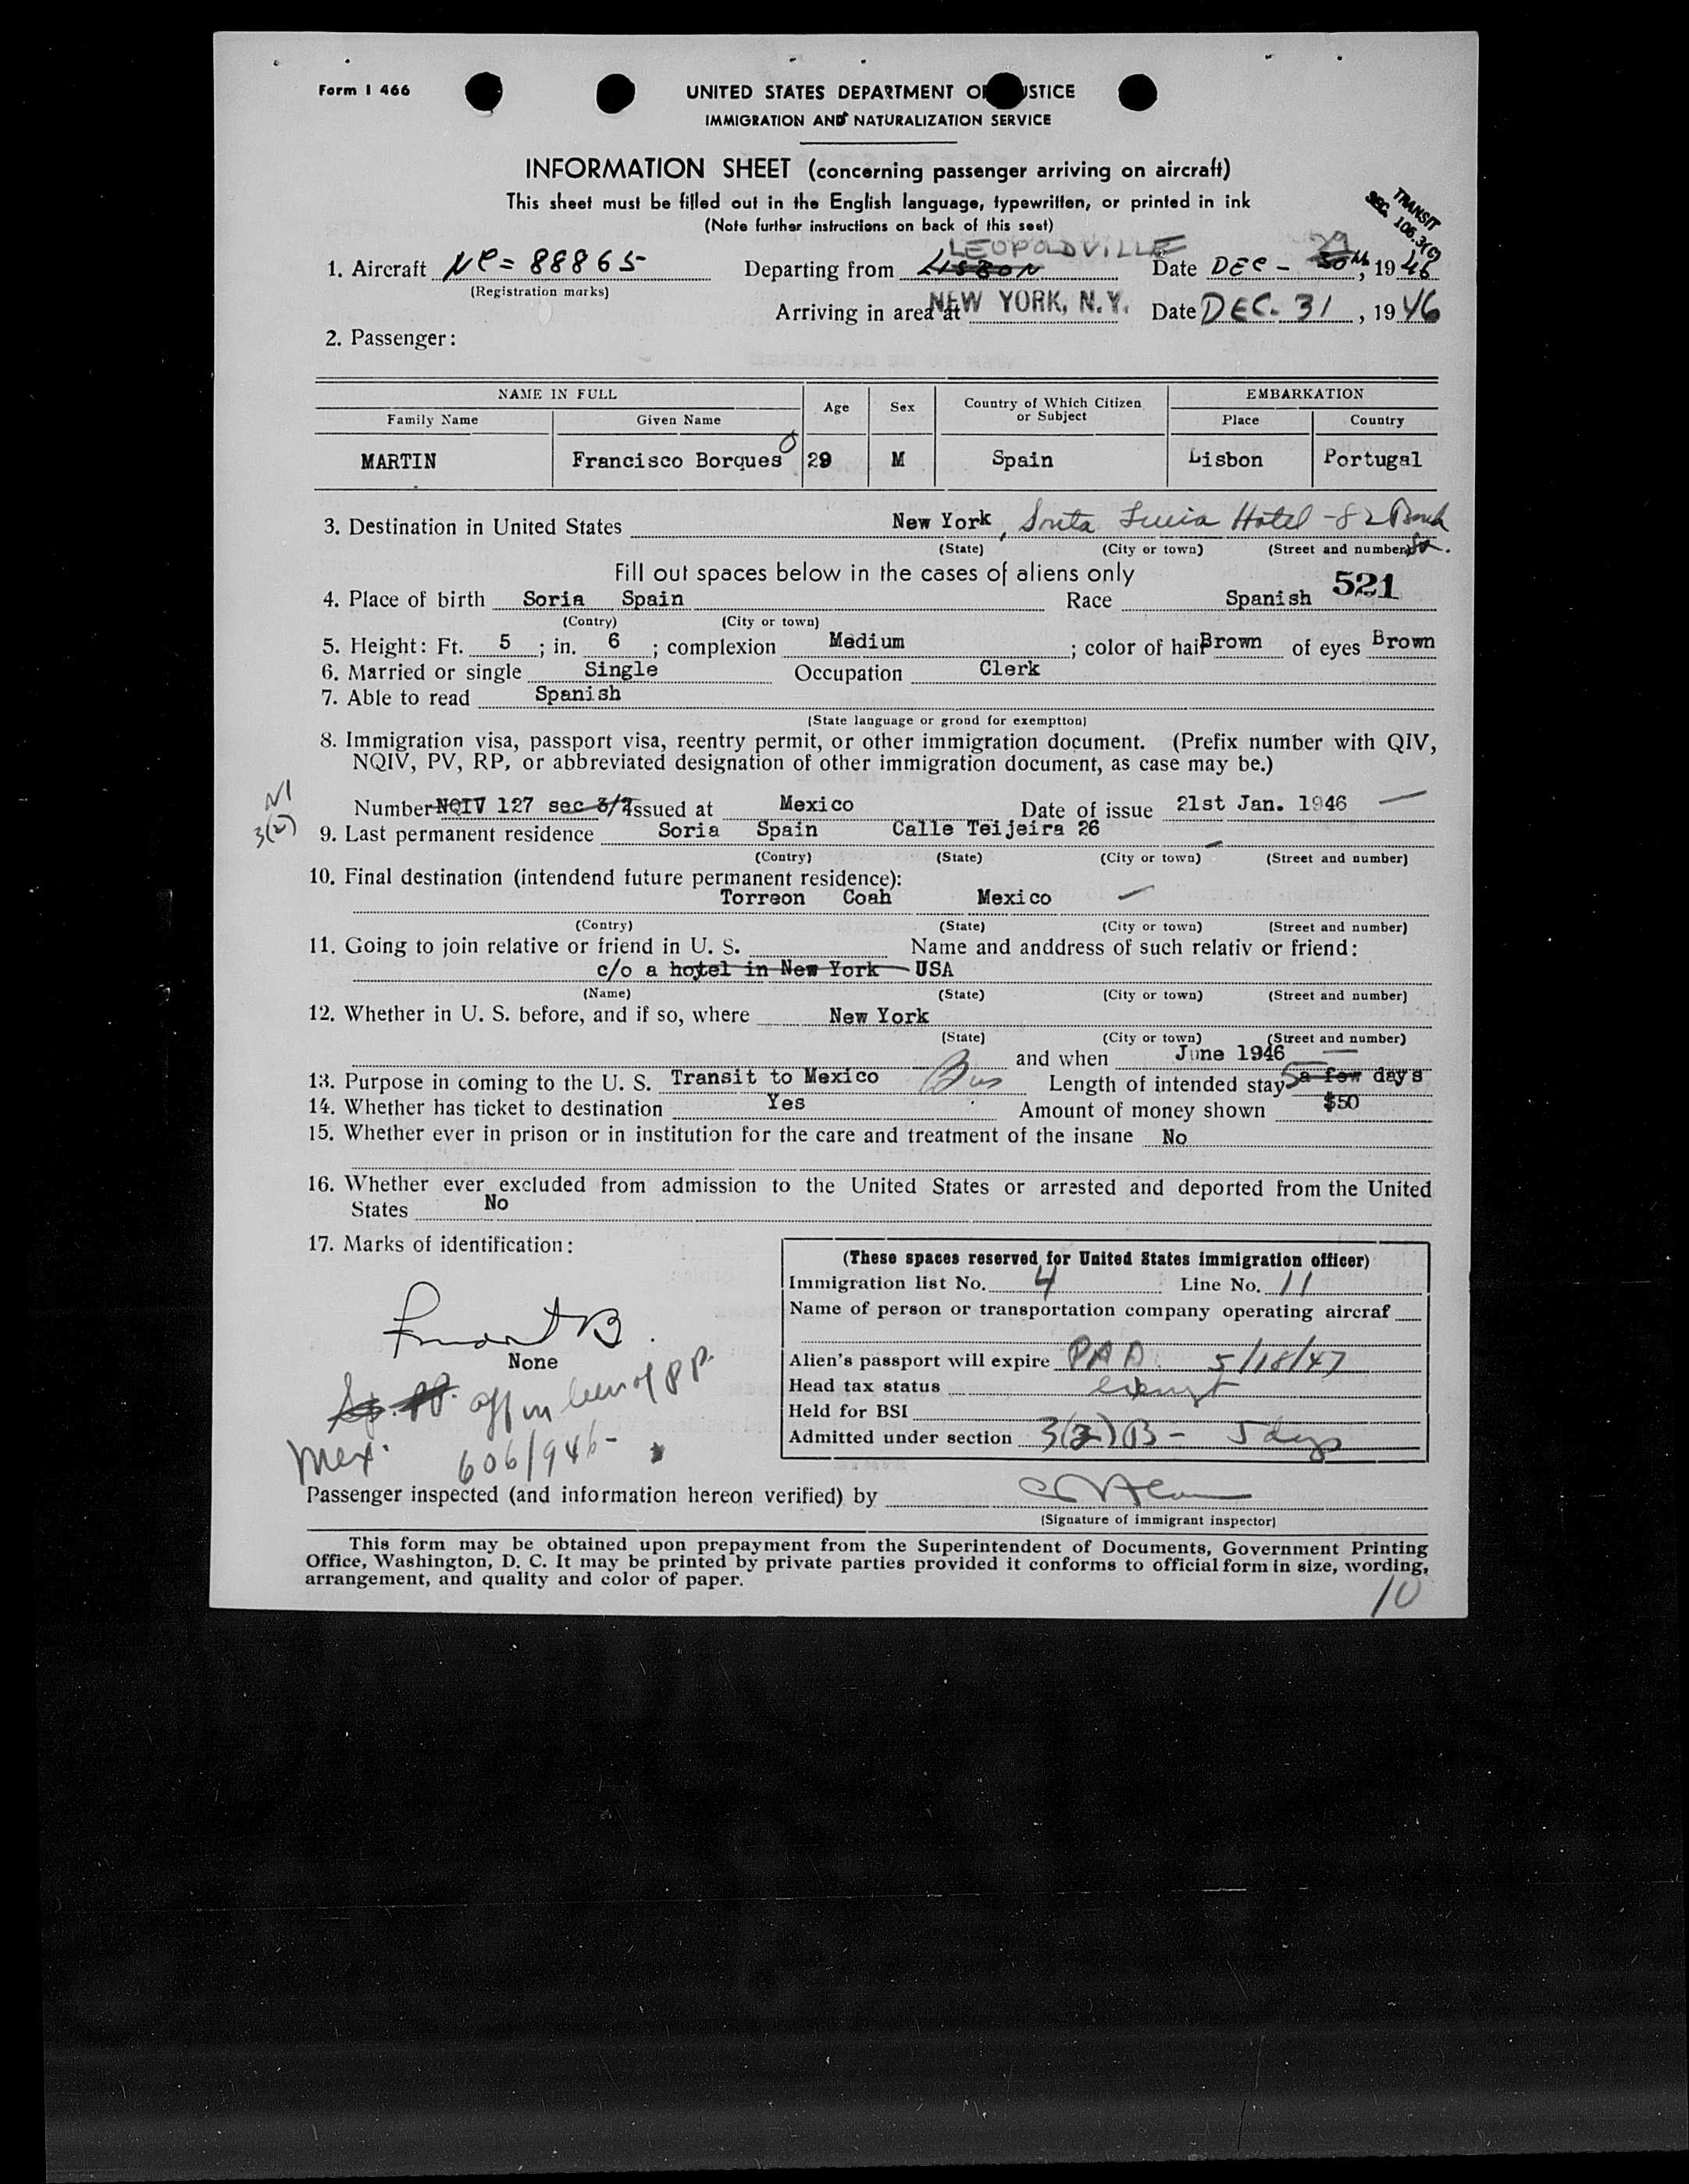 Form I 466
UNITED STATES DEPARTMENT OF JUSTICE
IMMIGRATION AND NATURALIZATION SERVICE
INFORMATION SHEET (concerning passenger arriving on aircraft)
This sheet must be filled out in the English language, typewritten, or printed in ink
(Note further instructions on back of this seet)
TRANSIT
SEC. 106.3(C)
LEOPOLDVILLE 29
1. Aircraft NC= 88865 Departing from LISBON Date DEC - 30th, 1946
(Registration marks)
Arriving in area at NEW YORK, N.Y. Date DEC. 31, 1946
2. Passenger:
NAME IN FULL Age Sex Country of Which Citizen or Subject EMBARKATION
Family Name Given Name Place Country
MARTIN Francisco Borques 29 M Spain Lisbon Portugal
3. Destination in United States New York, Santa Lucia Hotel - 82
(State) (City or town) (Street and number)
Fill out spaces below in the cases of aliens only
521
4. Place of birth Soria Spain Race Spanish
(Contry) (City or town)
5. Height: Ft. 5 ; in. 6 ; complexion Medium ; color of hair Brown of eyes Brown
6. Married or single Single Occupation Clerk
7. Able to read Spanish
(State language or grond for exemptton)
8. Immigration visa, passport visa, reentry permit, or other immigration document. (Prefix number with QIV,
NQIV, PV, RP, or abbreviated designation of other immigration document, as case may be.)
NI
3(2)
Number NQIV 127 sec 3/2 Issued at Mexico Date of issue 21st Jan. 1946
9. Last permanent residence Soria Spain Calle Teijeira 26
(Contry) (State) (City or town) (Street and number)
10. Final destination (intendend future permanent residence):
Torreon Coah Mexico
(Contry) (State) (City or town) (Street and number)
11. Going to join relative or friend in U. S. Name and anddress of such relativ or friend:
c/o a hotel in New York USA
(Name) (State) (City or town) (Street and number)
12. Whether in U. S. before, and if so, where New York
(State) (City or town) (Street and number)
and when June 1946
13. Purpose in coming to the U. S. Transit to Mexico Bus Length of intended stay 5 a few days
14. Whether has ticket to destination Yes Amount of money shown $50
15. Whether ever in prison or in institution for the care and treatment of the insane No
16. Whether ever excluded from admission to the United States or arrested and deported from the United
States No
17. Marks of identification:
None
aff in lieu of PP.
Mex. 606/946-
(These spaces reserved for United States immigration officer)
Immigration list No. 4 Line No. 11
Name of person or transportation company operating aircraf
PAA
Alien's passport will expire 5/18/47
Head tax status exempt
Held for BSI
Admitted under section 3(2)B - 5 days
Passenger inspected (and information hereon verified) by
(Signature of immigrant inspector)
This form may be obtained upon prepayment from the Superintendent of Documents, Government Printing
Office, Washington, D. C. It may be printed by private parties provided it conforms to official form in size, wording,
arrangement, and quality and color of paper.
10